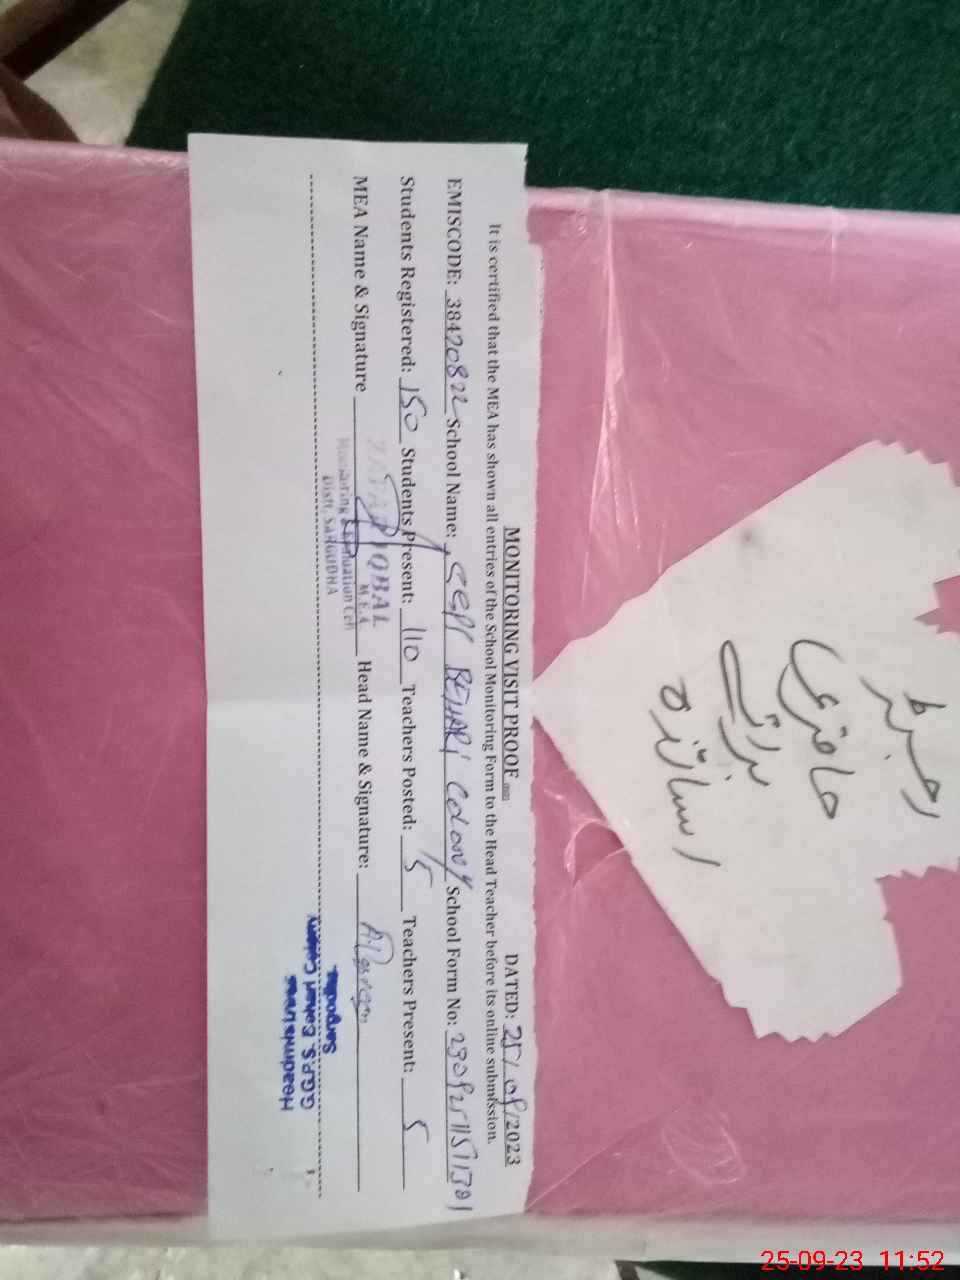 MONITORING VISIT PROOF
DATED: 25/09/2023
It is certified that the MEA has shown all entries of the School Monitoring Form to the Head Teacher before its online submission.
EMISCODE: 38420822 School Name: BEHARI COLONY School Form No:
Students Registered: 150 Students Present: 110 Teachers Posted: 5 Teachers Present: 5
MEA Name & Signature Head Name & Signature:
ZAFAR IQBAL
M.E.A
Monitoring & Evaluation Cell
Distt. SARGODHA
Headmistress
Sargodha
رجسٹر
حاضری
برائے
اساتذہ
25-09-23 11:52